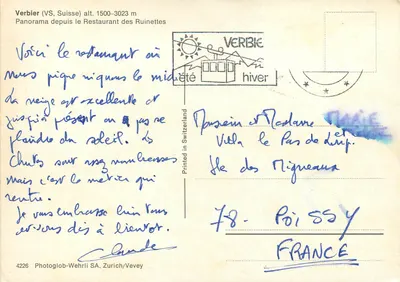 Verbier (VS, Suisse) alt. 1500-3023 m
Panorama depuis le Restaurant des Ruinettes
Voici le restaurant où
nous pique niquons le midi
la neige est excellente et
jusqu'à présent on a pas se
plaindre du soleil. Les
Chutes sont assez nombreuses
mais c'est le métier qui
rentre.
Je vous embrasse bien tous
et vous dis à bientôt.
Claude
4226 Photoglob-Wehrli SA, Zurich/Vevey
Printed in Switzerland
VERBIE
été hiver
Monsieur et Madame
Villa le Pas de
Ile des Migneaux
78- POISSY
FRANCE